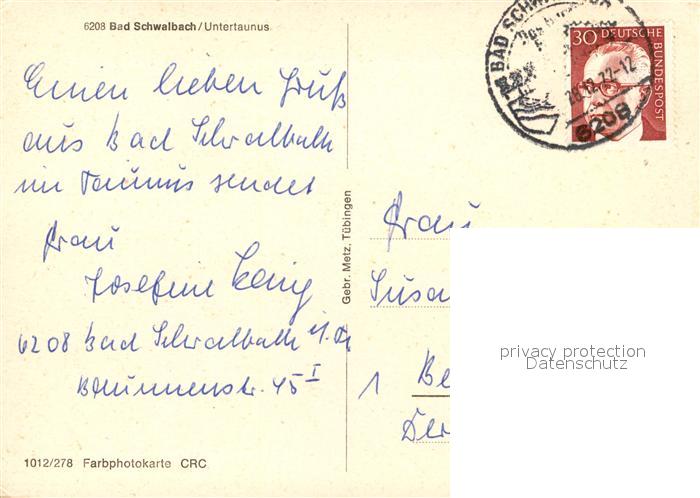 6208 Bad Schwalbach/Untertaunus
Einen lieben Gruß
aus Bad Schwalbach
im Taunus sendet
Frau
Josefine
6208 Bad Schwalbach
Brunnenstr. 45 I
1012/278 Farbphotokarte CRC
Gebr. Metz, Tübingen
BAD SCHWALBACH
72-12
6208
30 DEUTSCHE
BUNDESPOST
Frau
Susa
1 Be
privacy protection
Datenschutz